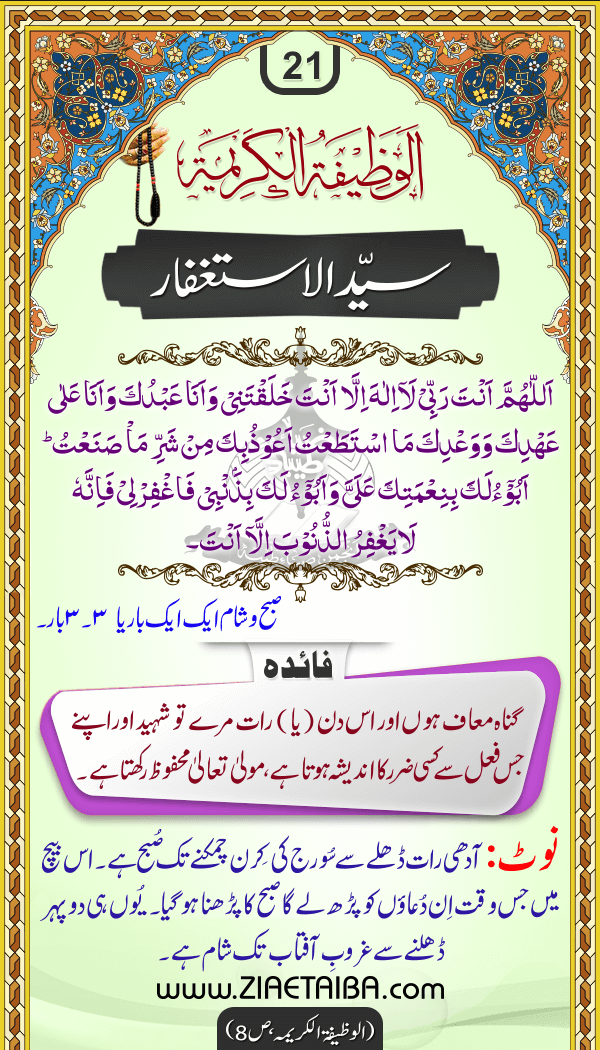 21
اَلْوَظِیْفَۃُ الْکَرِیْمَۃ
سیّد الاستغفار
اَللّٰهُمَّ اَنْتَ رَبِّیْ لَآ اِلٰهَ اِلَّا اَنْتَ خَلَقْتَنِیْ وَاَنَا عَبْدُكَ وَاَنَا عَلٰی
عَهْدِكَ وَوَعْدِكَ مَا اسْتَطَعْتُ اَعُوْذُبِكَ مِنْ شَرِّ مَاْ صَنَعْتُ ؕ
اَبُوْٓءُ لَكَ بِنِعْمَتِكَ عَلَیَّ وَاَبُوْٓءُ لَكَ بِذَنْۢبِیْ فَاغْفِرْلِیْ فَاِنَّهٗ
لَا یَغْفِرُ الذُّنُوْبَ اِلَّآ اَنْتَ۔
صبح و شام ایک ایک بار یا ۳۔۳ بار۔
فائدہ
گناہ معاف ہوں اور اس دن (یا) رات مرے تو شہید اور اپنے
جس فعل سے کسی ضرر کا اندیشہ ہوتا ہے، مولیٰ تعالیٰ محفوظ رکھتا ہے۔
نوٹ: آدھی رات ڈھلے سے سُورج کی کِرن چمکنے تک صُبح ہے۔ اس بیچ
میں جس وقت اِن دُعاؤں کو پڑھ لے گا صبح کا پڑھنا ہو گیا۔ یُوں ہی دوپہر
ڈھلنے سے غروبِ آفتاب تک شام ہے۔
www.ZIAETAIBA.com
(الوظیفۃ الکریمہ، ص8)